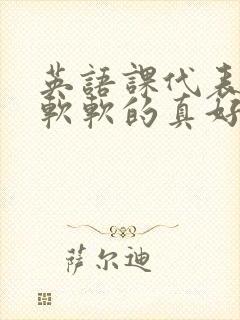 英語課代表
軟軟的真好
萨尔迪